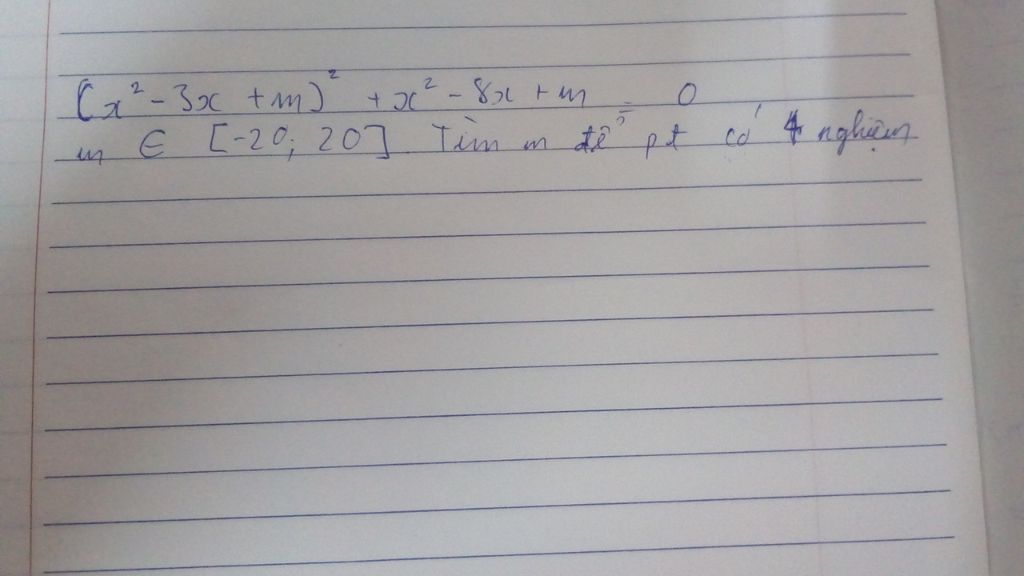 (x² - 3x + m)² + x² - 8x + m = 0
m ∈ [-20; 20] Tìm m để pt có 4 nghiệm